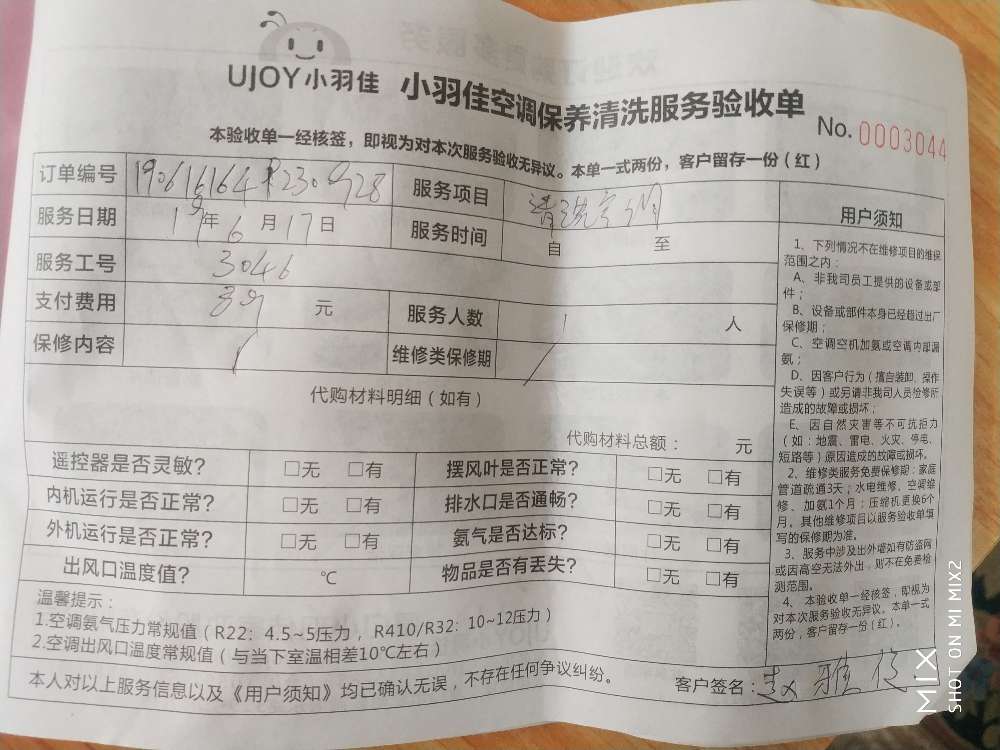 UJOY小羽佳 小羽佳空调保养清洗服务验收单
No. 0003044
本验收单一经核签，即视为对本次服务验收无异议。本单一式两份，客户留存一份（红）
订单编号 服务项目 清洗空调
服务日期 19年6月17日 服务时间 自 至
服务工号 3046
支付费用 39 元 服务人数 1 人
保修内容 / 维修类保修期 /
代购材料明细（如有）
代购材料总额： 元
遥控器是否灵敏？ □无 □有 摆风叶是否正常？ □无 □有
内机运行是否正常？ □无 □有 排水口是否通畅？ □无 □有
外机运行是否正常？ □无 □有 氨气是否达标？ □无 □有
出风口温度值？ ℃ 物品是否有丢失？ □无 □有
温馨提示：
1.空调氨气压力常规值（R22：4.5~5压力，R410/R32：10~12压力）
2.空调出风口温度常规值（与当下室温相差10℃左右）
本人对以上服务信息以及《用户须知》均已确认无误，不存在任何争议纠纷。
客户签名：赵雅俊
用户须知
1、下列情况不在维修项目的维保
范围之内：
A、非我司员工提供的设备或部
件；
B、设备或部件本身已经超过出厂
保修期；
C、空调空机加氨或空调内部漏
氨；
D、因客户行为（擅自装卸、操作
失误等）或另请非我司人员检修所
造成的故障或损坏；
E、因自然灾害等不可抗拒力
（如：地震、雷电、火灾、停电、
短路等）原因造成的故障或损坏。
2、维修类服务免费保修期：家庭
管道疏通3天；水电维修、空调维
修、加氨1个月；压缩机更换6个
月，其他维修项目以服务验收单填
写的保修期为准。
3、服务中涉及出外墙如有防盗网
或因高空无法外出，则不在免费检
测范围。
4、本验收单一经核签，即视为
对本次服务验收无异议。本单一式
两份，客户留存一份（红）。
MIX
SHOT ON MI MIX2